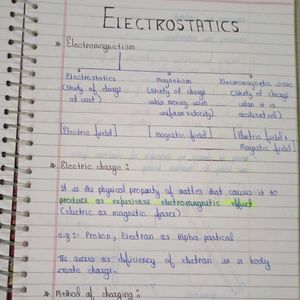 ELECTROSTATICS
* Electromagnetism
Electrostatics magnetism Electromagnetic waves
(study of charge (study of charge (study of charge
at rest) when moving with when it is
uniform velocity) accelerated)
[Electric field] [magnetic field] [Electric field &
magnetic field]
* Electric charge :-
it is the physical property of matter that causes it to
produce or experience electromagnetic effect
(electric or magnetic force)
e.g :- Proton, Electron or Alpha partical
The excess or deficiency of electron in a body
create charge.
* Method of charging :-